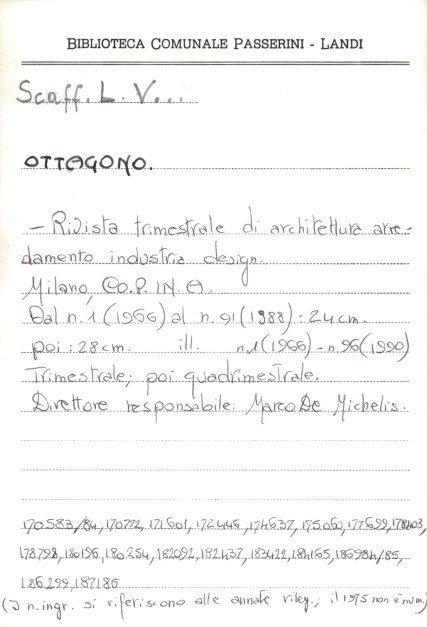 BIBLIOTECA COMUNALE PASSERINI - LANDI
Scaff. L. V...
OTTAGONO.
- Rivista trimestrale di architettura arre-
damento industria design.
Milano, CO.P.IN.A.
Dal n. 1 (1966) al n. 91 (1988) : 24 cm.
poi : 28 cm. ill. n.1 (1966) - n. 96 (1990)
Trimestrale; poi quadrimestrale.
Direttore responsabile: Marco De Michelis.
170583/84, 170772, 171601, 172446, 174637, 175060, 177699, 178403,
178798, 180196, 180254, 182092, 182437, 183422, 184165, 186984/85,
186299, 187186
(I n. ingr. si riferiscono alle annate rileg.; il 1975 non è num.)